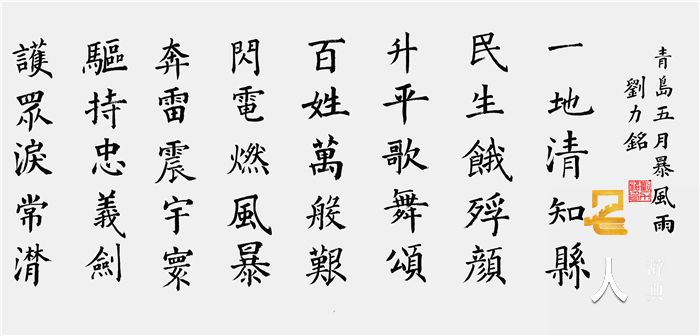 青島五月暴風雨
劉力銘
一地清知縣
民生餓殍顔
升平歌舞頌
百姓萬般艱
閃電燃風暴
奔雷震宇寰
驅持忠義劍
護眾淚常潸
人